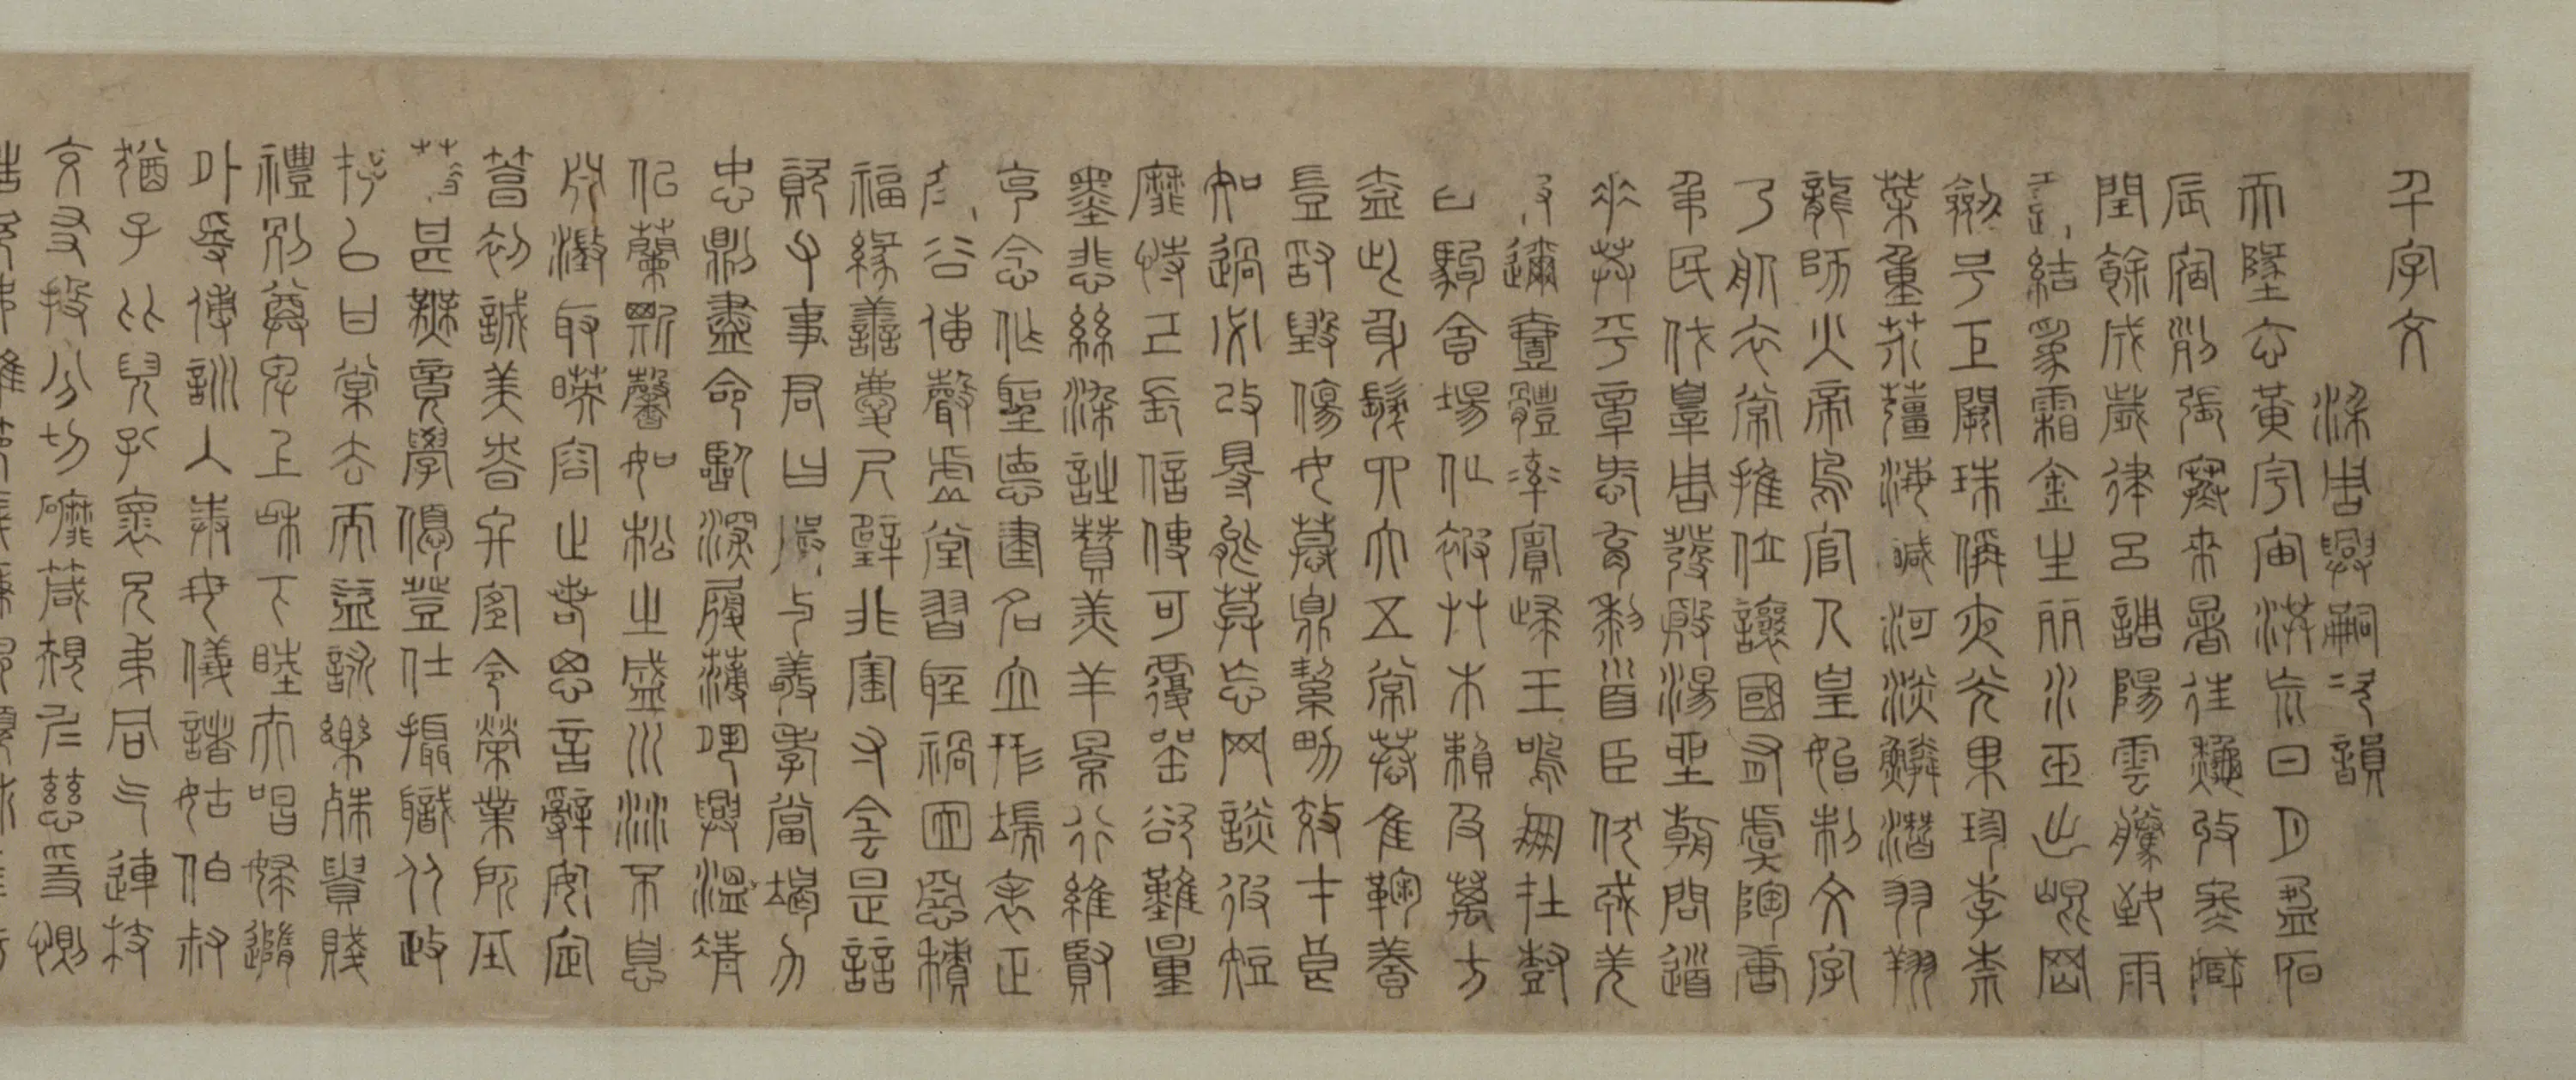 千字文
梁周興嗣次韻
天地玄黃宇宙洪荒日月盈昃
辰宿列張寒來暑往秋收冬藏
閏餘成歲律呂調陽雲騰致雨
露結爲霜金生麗水玉出崐岡
劒号巨闕珠稱夜光果珍李柰
菜重芥薑海鹹河淡鱗潛羽翔
龍師火帝鳥官人皇始制文字
乃服衣裳推位讓國有虞陶唐
弔民伐罪周發殷湯坐朝問道
垂拱平章愛育黎首臣伏戎羌
遐邇壹體率賓歸王鳴鳳在樹
白駒食場化被草木賴及萬方
蓋此身髮四大五常恭惟鞠養
豈敢毀傷女慕貞絜男效才良
知過必改得能莫忘罔談彼短
靡恃己長信使可覆器欲難量
墨悲絲染詩贊羔羊景行維賢
克念作聖德建名立形端表正
空谷傳聲虛堂習聽禍因惡積
福緣善慶尺璧非寶寸陰是競
資父事君曰嚴與敬孝當竭力
忠則盡命臨深履薄夙興溫凊
似蘭斯馨如松之盛川流不息
淵澄取映容止若思言辭安定
篤初誠美慎終宜令榮業所基
籍甚無竟學優登仕攝職從政
存以甘棠去而益詠樂殊貴賤
禮別尊卑上和下睦夫唱婦隨
外受傅訓入奉母儀諸姑伯叔
猶子比兒孔懷兄弟同氣連枝
交友投分切磨箴規仁慈隱惻